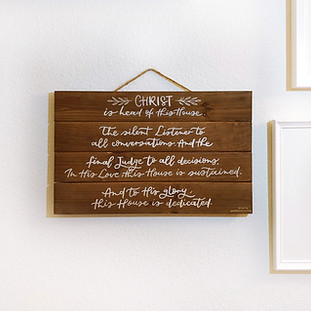 CHRIST
is head of this House.
The silent Listener to
all conversations And the
final Judge to all decisions.
In His Love this House is sustained.
And to His glory,
this House is dedicated.